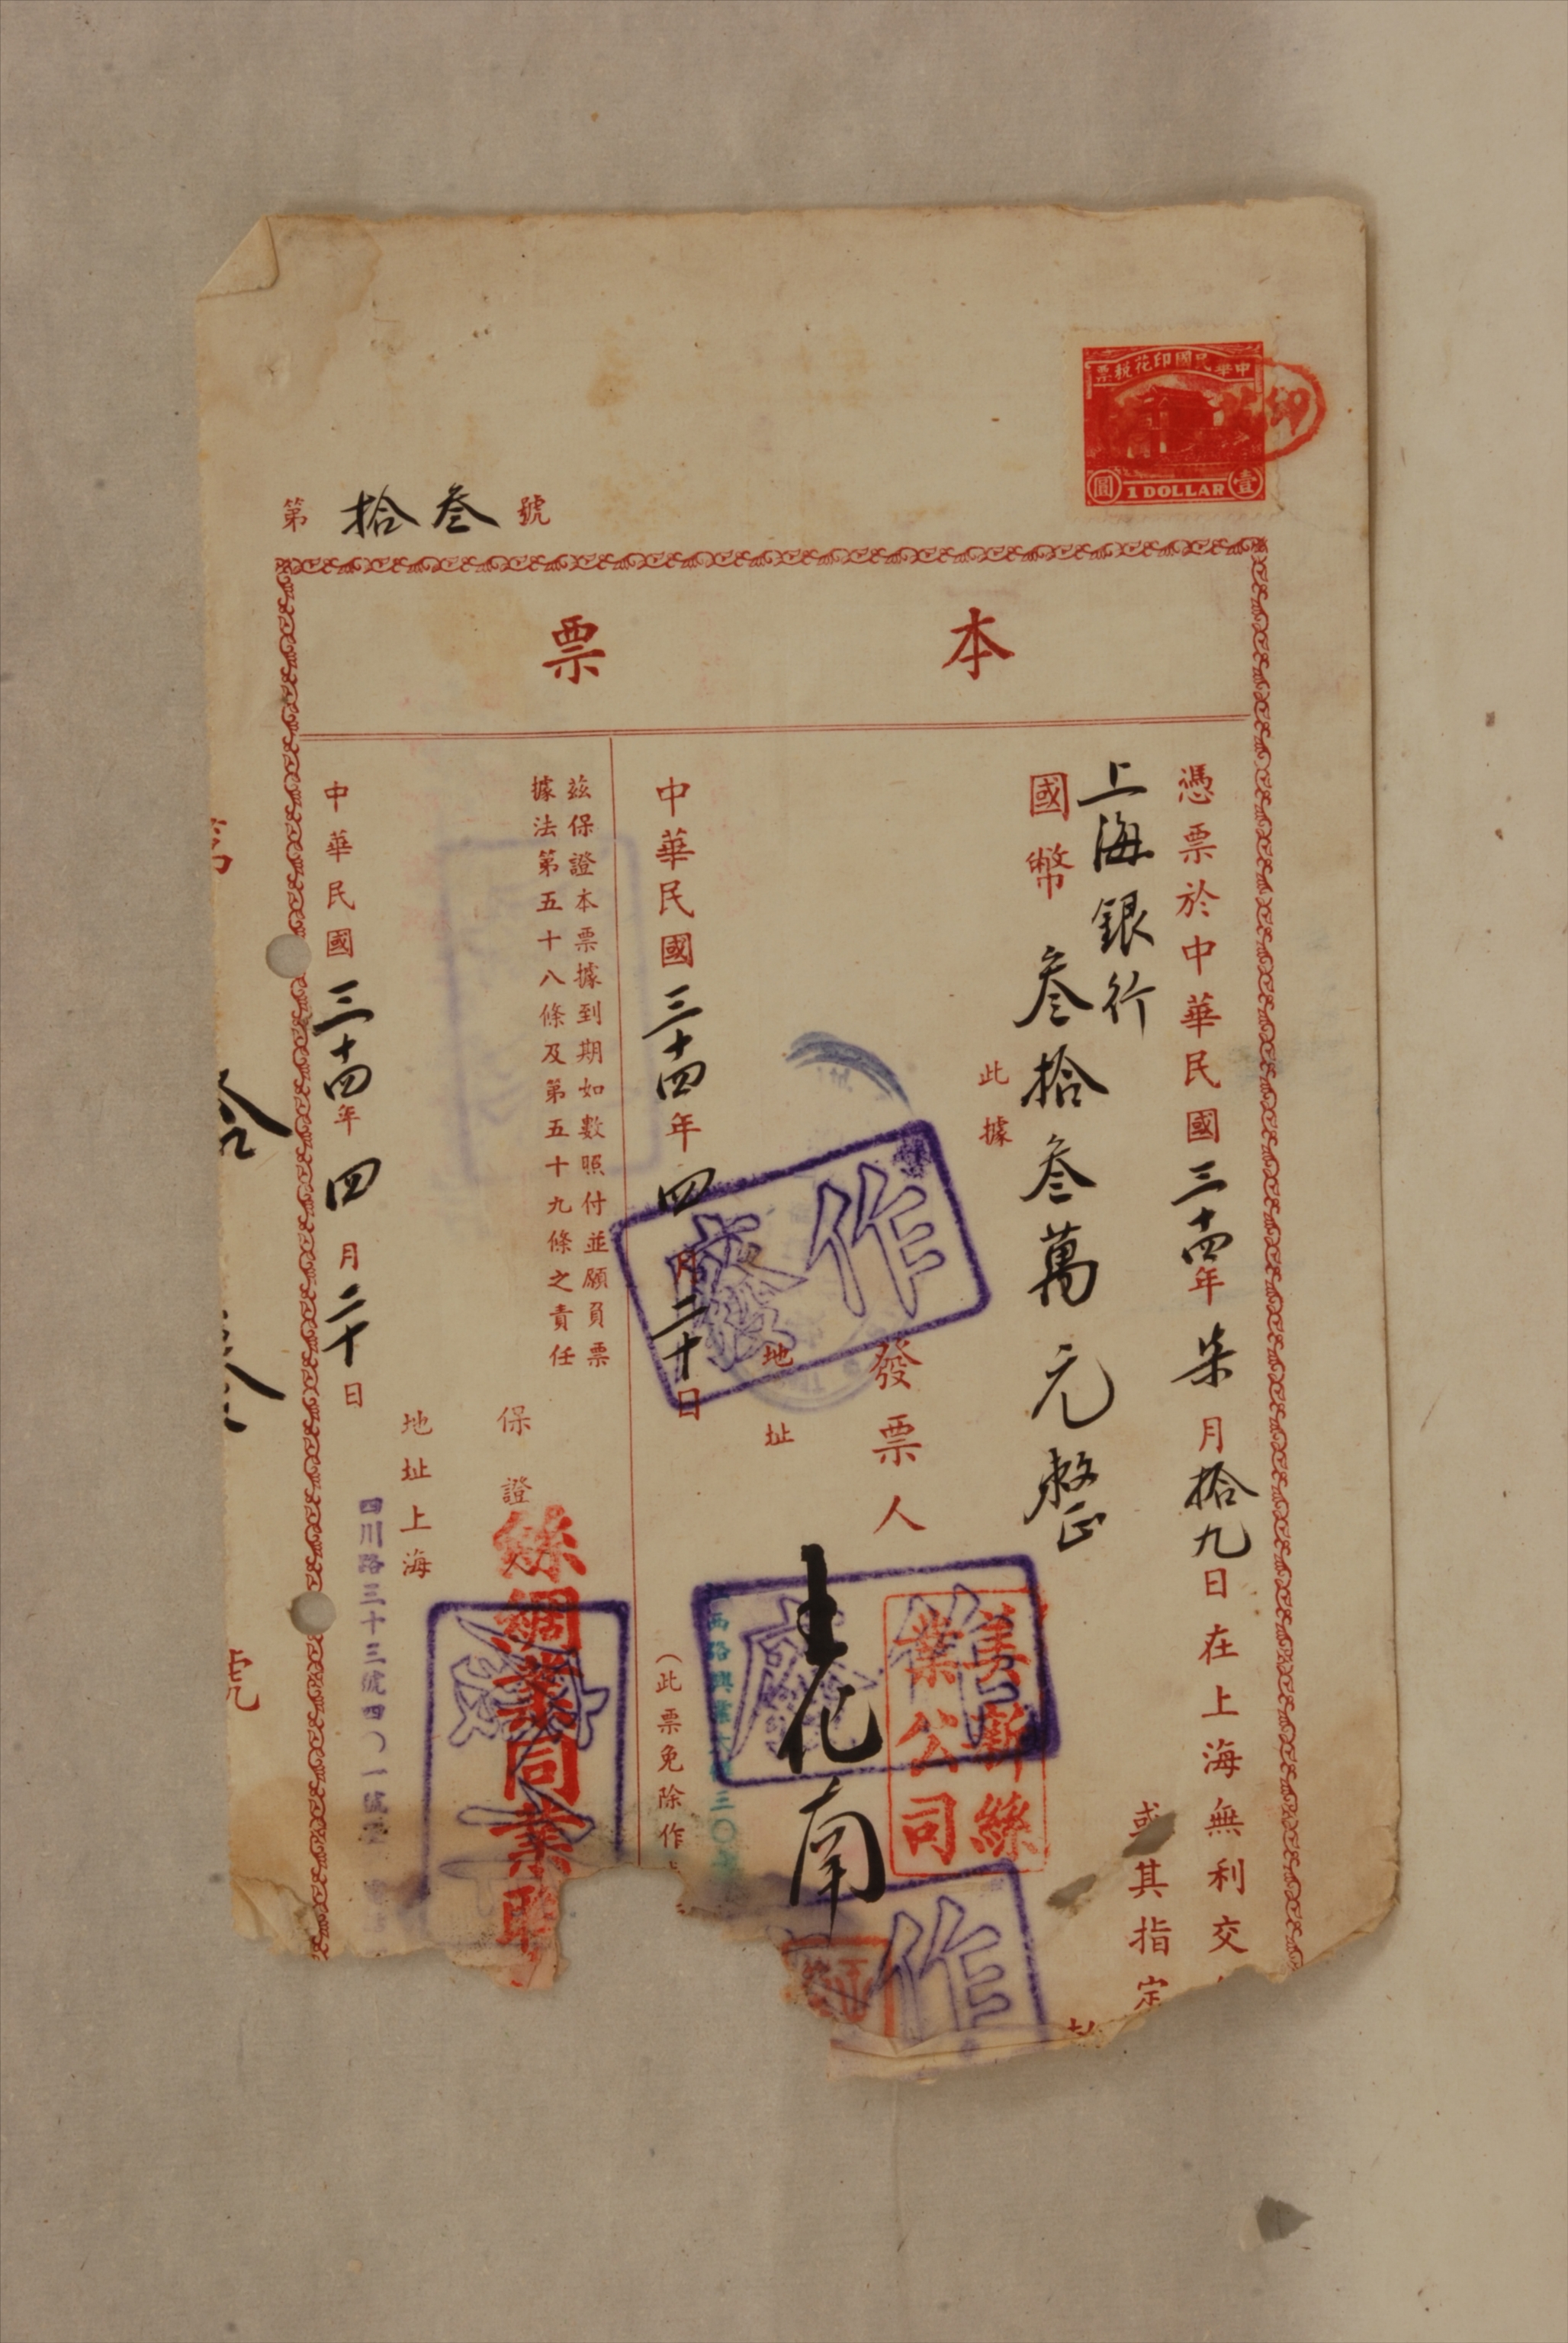 中華民國印花稅票
壹圓
1 DOLLAR
印
第拾叁號
本票
憑票於中華民國三十四年柒月拾九日在上海無利交
上海銀行
或其指定
國幣叁拾叁萬元整
此據
發票人
美新絲業公司
王化南
地址
作廢
作廢
作
中華民國三十四年四月二十日
(此票免除作
茲保證本票據到期如數照付並願負票
據法第五十八條及第五十九條之責任
保證
絲綢業同業聯
地址上海
四川路三十三號四〇一號
中華民國三十四年四月二十日